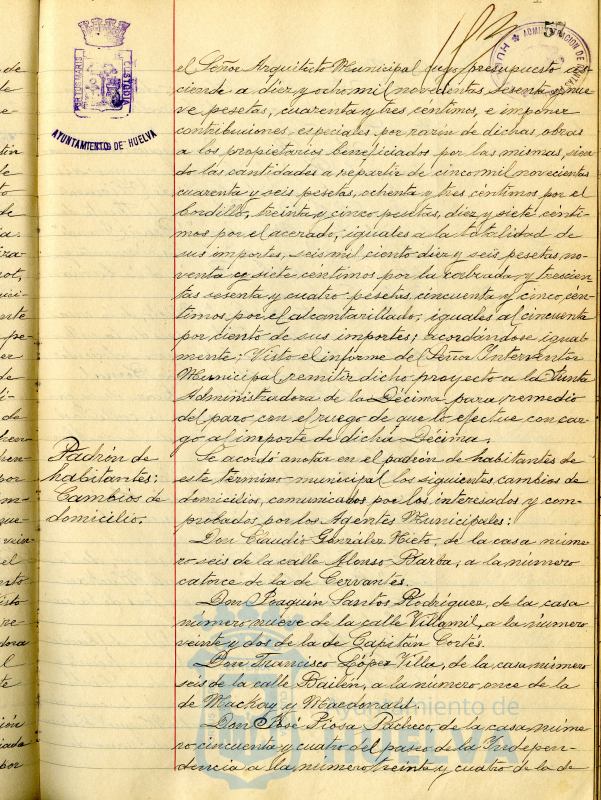 57
PORTUS MARIS
CUSTODIA
AYUNTAMIENTO DE HUELVA
el Señor Arquitecto Municipal cuyo presupuesto as-
ciende a diez y ocho mil novecientas sesenta y nue-
ve pesetas, cuarenta y tres céntimos, e imponer
contribuciones especiales por razón de dichas obras
a los propietarios beneficiados por las mismas, sien-
do las cantidades a repartir de cinco mil novecientas
cuarenta y seis pesetas, ochenta y tres céntimos por el
bordillo, treinta y cinco pesetas, diez y siete cénti-
mos por el acerado, iguales a la totalidad de
sus importes, seis mil ciento diez y seis pesetas, no-
venta y siete céntimos por la calzada y trescien-
tas sesenta y cuatro pesetas, cincuenta y cinco cén-
timos por el alcantarillado, iguales al cincuenta
por ciento de sus importes; acordándose igual-
mente; Visto el informe del Señor Interventor
Municipal remitir dicho proyecto a la Junta
Administradora de la Décima para remedio
del paro, con el ruego de que lo efectue con car-
go al importe de dicha Décima.
Padrón de
habitantes:
Cambios de
domicilio.
Se acordó anotar en el padrón de habitantes de
este término municipal los siguientes cambios de
domicilios, comunicados por los interesados y com-
probados por los Agentes Municipales:
Don Claudio González Nieto, de la casa núme-
ro seis de la calle Alonso Barba, a la número
catorce de la de Cervantes.
Don Joaquín Santos Rodríguez, de la casa
número nueve de la calle Villamil, a la número
veinte y dos de la de Capitán Cortés.
Don Francisco López Villa, de la casa número
seis de la calle Bailén, a la número once de la
de Mackay y Macdonald.
Don José Piosa Pacheco, de la casa núme-
ro cincuenta y cuatro del paseo de la Indepen-
dencia a la número treinta y cuatro de la de
Ayuntamiento de
HUELVA